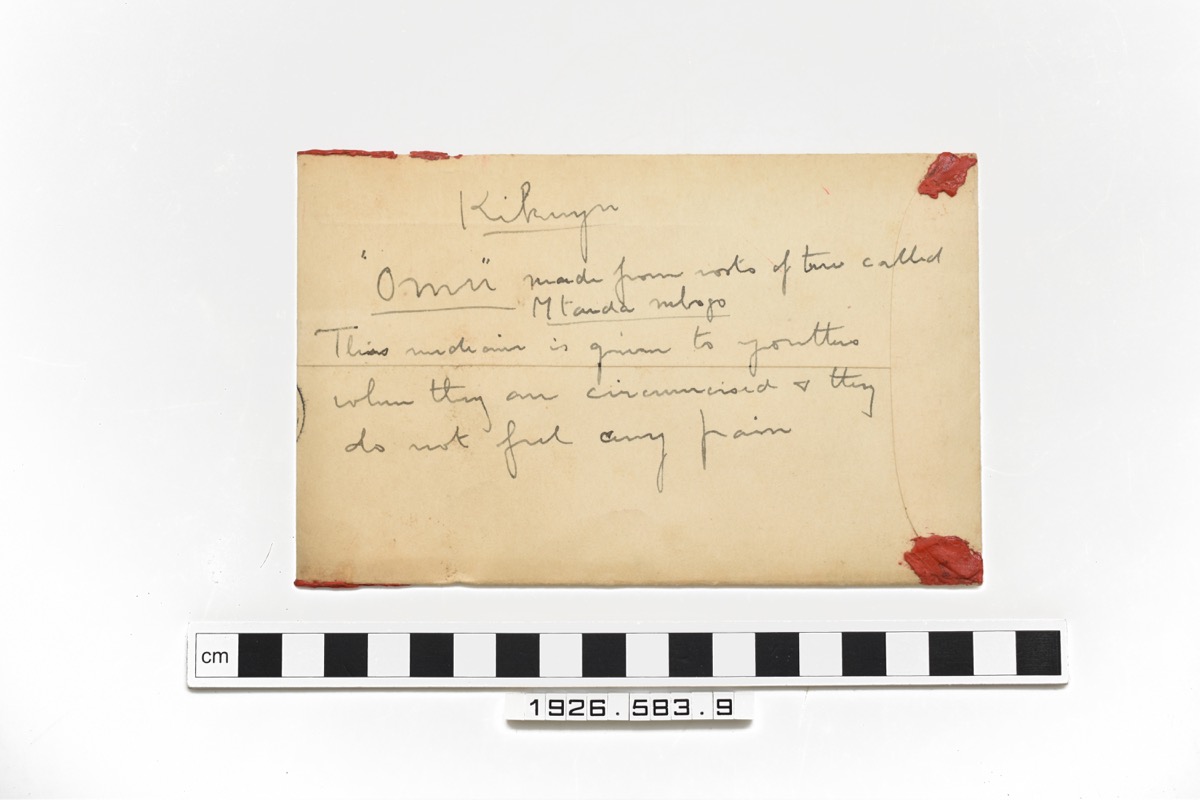 Kikuyu
"Omu" made from roots of tree called
Mtanda mbogo
This medicine is given to youths
when they are circumcised & they
do not feel any pain
cm
1926.583.9